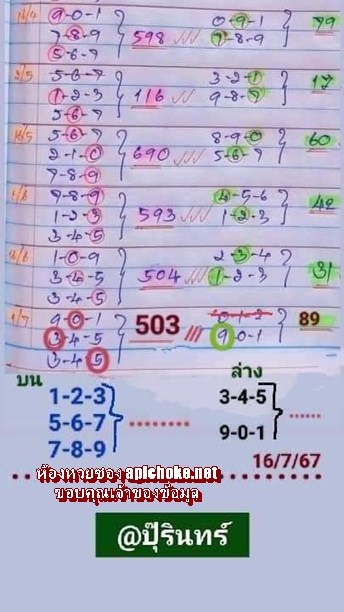 16/4 9-0-1 0-9-1 79
7-8-9 598 /// 7-8-9
5-6-7
2/5 5-6-7 3-2-1 17
1-2-3 116 /// 9-8-7
5-6-7
16/5 5-6-7 8-9-0 60
2-1-0 690 /// 5-6-7
7-8-9
7-8-9 4-5-6 42
1-2-3 593 /// 1-2-3
3-4-5
1-0-9 2-3-4 31
3-4-5 504 /// 1-2-3
3-4-5
1/7 9-0-1 0-1-2 89
3-4-5 503 /// 9-0-1
3-4-5
บน ล่าง
1-2-3 3-4-5
5-6-7 ........ ......
7-8-9 9-0-1
16/7/67
ห้องหวยซอง apichoke.net
ขอบคุณเจ้าของข้อมูล
@ปุ้รินทร์